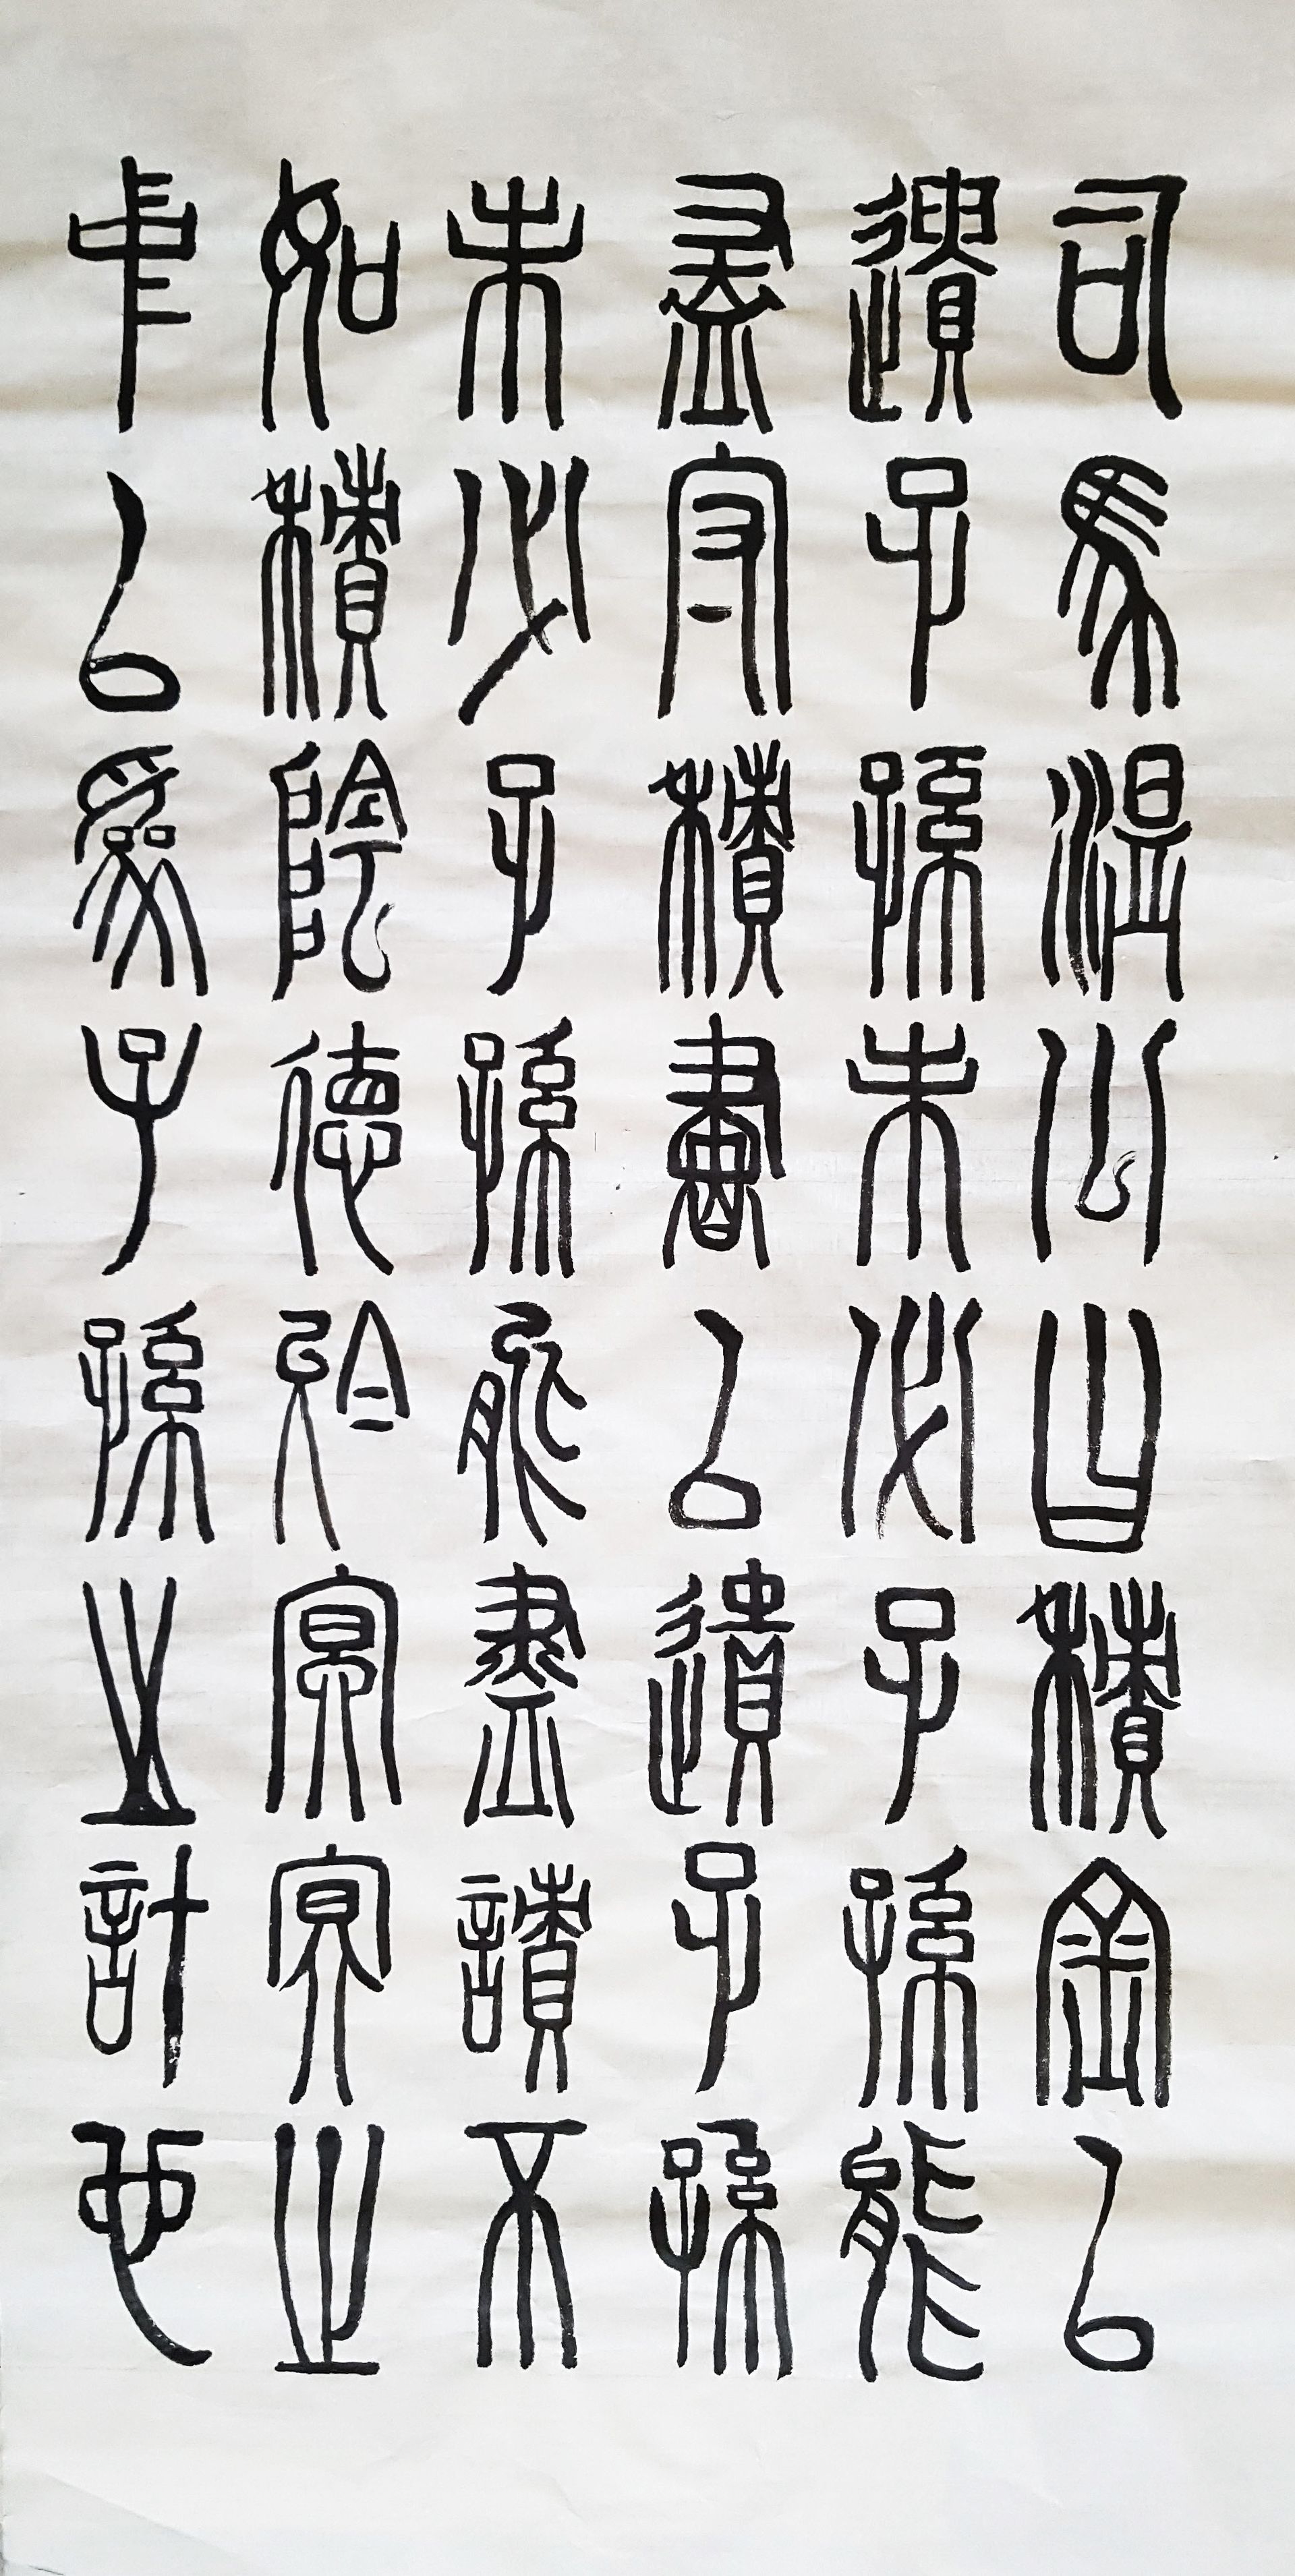 司馬溫公曰積金以
遺子孫未必子孫能
盡守積書以遺子孫
未必子孫能盡讀不
如積陰德於冥冥之
中以為子孫之計也